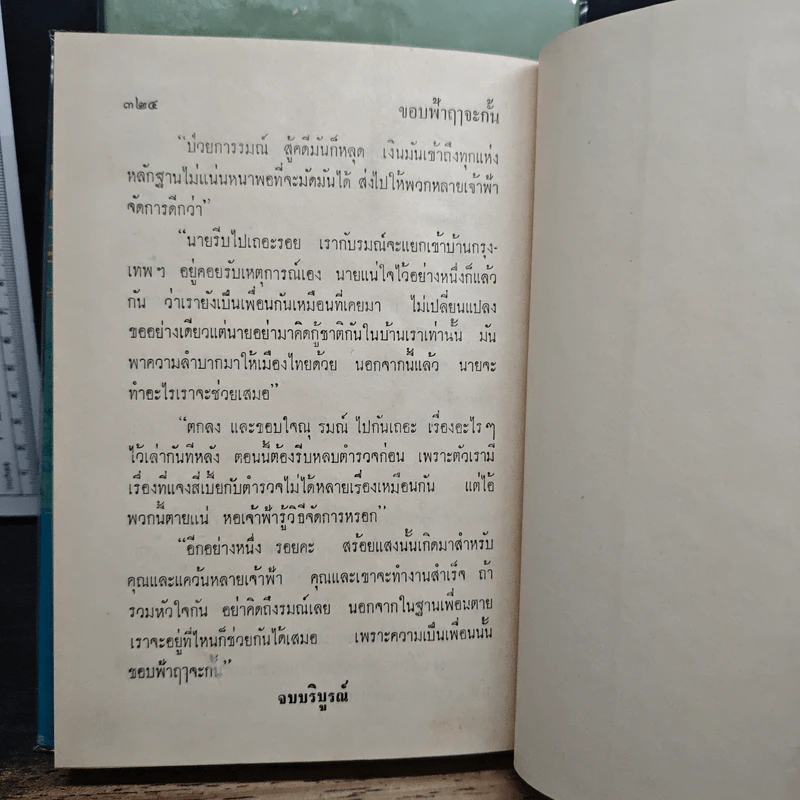 ๓๒๔
ขอบฟ้าฤๅจะกั้น
“ป่วยการรมณ์ สู้คดีมันก็หลุด เงินมันเข้าถึงทุกแห่ง
หลักฐานไม่แน่นหนาพอที่จะมัดมันได้ ส่งไปให้พวกหลายเจ้าฟ้า
จัดการดีกว่า”
“นายรีบไปเถอะรอย เรากับรมณ์จะแยกเข้าบ้านกรุง-
เทพฯ อยู่คอยรับเหตุการณ์เอง นายแน่ใจไว้อย่างหนึ่งก็แล้ว
กัน ว่าเรายังเป็นเพื่อนกันเหมือนที่เคยมา ไม่เปลี่ยนแปลง
ขออย่างเดียวแต่นายอย่ามาคิดกู้ชาติกันในบ้านเราเท่านั้น มัน
พาความลำบากมาให้เมืองไทยด้วย นอกจากนี้แล้ว นายจะ
ทำอะไรเราจะช่วยเสมอ”
“ตกลง และขอบใจณุ รมณ์ ไปกันเถอะ เรื่องอะไรๆ
ไว้เล่ากันทีหลัง ตอนนี้ต้องรีบหลบตำรวจก่อน เพราะตัวเรามี
เรื่องที่แจงสี่เบี้ยกับตำรวจไม่ได้หลายเรื่องเหมือนกัน แต่ไอ้
พวกนี้ตายแน่ หอเจ้าฟ้ารู้วิธีจัดการหรอก”
“อีกอย่างหนึ่ง รอยคะ สร้อยแสงนั้นเกิดมาสำหรับ
คุณและแคว้นหลายเจ้าฟ้า คุณและเขาจะทำงานสำเร็จ ถ้า
รวมหัวใจกัน อย่าคิดถึงรมณ์เลย นอกจากในฐานเพื่อนตาย
เราจะอยู่ที่ไหนก็ช่วยกันได้เสมอ เพราะความเป็นเพื่อนนั้น
ขอบฟ้าฤๅจะกั้น”
จบบริบูรณ์